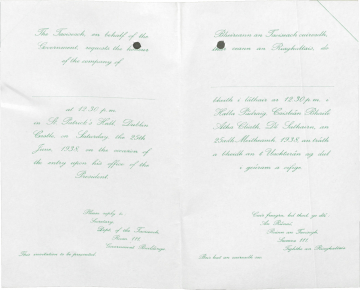 The Taoiseach, on behalf of the
Government, requests the
of the company of
at 12.30 p.m.
in St. Patrick's Hall, Dublin
Castle, on Saturday, the 25th
June, 1938, on the occasion of
the entry upon his office of the
President.
Please reply to:
Secretary,
Dept. of the Taoiseach,
Room
Government Buildings.
This invitation to be presented.
an Taoiseach
mar mian an Riaghaltais do
bheith i láthair ar 12.30 p.m. i
Halla Pádraig, Caisleán Bhaile
Átha Cliath, Dé Sathairn, an
25adh Meitheamh, 1938, an tráth
a bheidh an t Uachtarán ag dul
i gcúram a oifige.
Cuir freagra, led thoil, go dtí:
An Rúnaí,
Roinn an Taoisigh,
Seomra